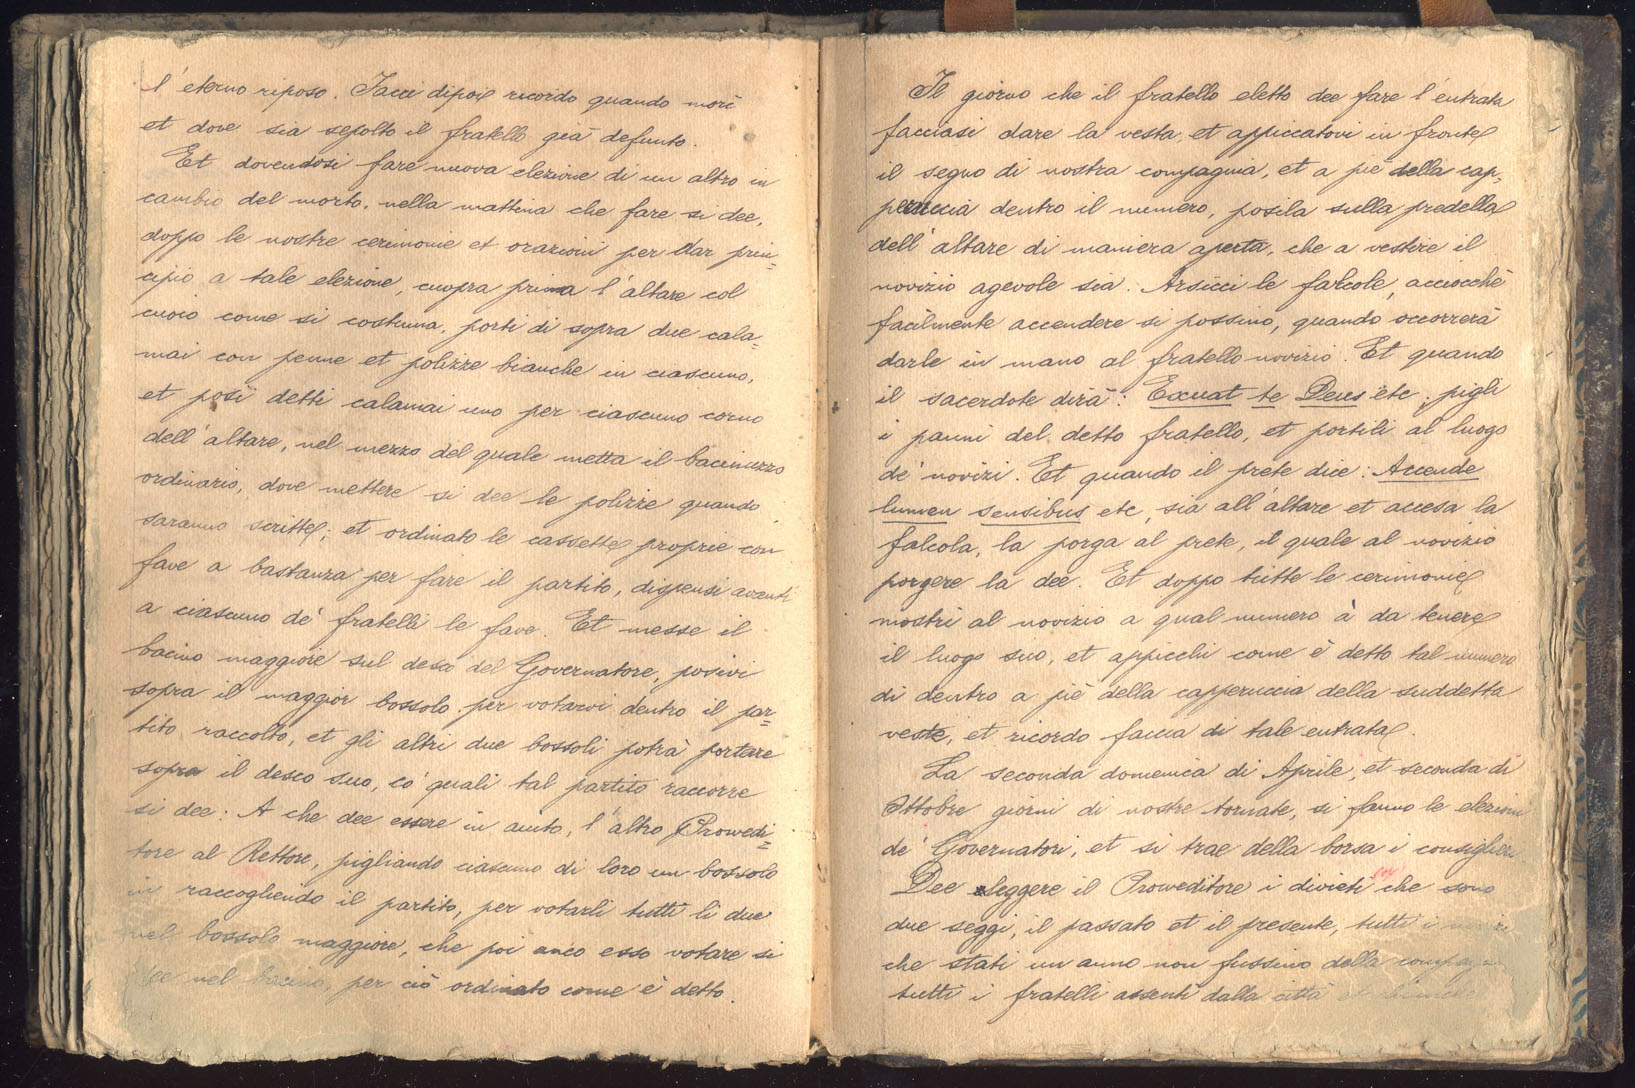 l'eterno riposo. Facci dipoi ricordo quando morì
et dove sia sepolto il fratello già defunto.
Et dovendosi fare nuova elezione di un altro in
cambio del morto, nella mattina che fare si dee,
doppo le nostre cerimonie et orazioni per dar prin=
cipio a tale elezione, cuopra prima l'altare col
cuoio come si costuma, porti di sopra due cala=
mai con penne et polizze bianche in ciascuno,
et posi detti calamai uno per ciascuno corno
dell'altare, nel mezzo del quale metta il bacinuzzo
ordinario, dove mettere si dee le polizie quando
saranno scritte; et ordinato le cassette proprie con
fave a bastanza per fare il partito, dispensi avanti
a ciascuno de' fratelli le fave. Et messe il
bacino maggiore sul desco del Governatore, posivi
sopra il maggior bossolo per votarvi dentro il par=
tito raccolto, et gli altri due bossoli potrà portare
sopra il desco suo, co' quali tal partito raccorre
si dee: A che dee essere in aiuto, l'altro Provvedi=
tore al Rettore, pigliando ciascuno di loro un bossolo
in raccogliendo il partito, per votarli tutti li due
nel bossolo maggiore, che poi anco esso votare si
dee nel bacino, per ciò ordinato come è detto.
Il giorno che il fratello eletto dee fare l'entrata
facciasi dare la vesta, et appiccatovi in fronte
il segno di nostra compagnia, et a piè della cap=
peruccia dentro il numero, posila sulla predella
dell'altare di maniera aperta, che a vestire il
novizio agevole sia. Arsicci le falcole, acciocchè
facilmente accendere si possino, quando occorrerà
darle in mano al fratello novizio. Et quando
il sacerdote dirà: Exuat te Deus etc; pigli
i panni del detto fratello, et portili al luogo
de' novizi. Et quando il prete dice: Accende
lumen sensibus etc, sia all'altare et accesa la
falcola, la porga al prete, il quale al novizio
porgere la dee. Et doppo tutte le cerimonie
mostri al novizio a qual numero à da tenere
il luogo suo, et appicchi come è detto tal numero
di dentro a piè della capperuccia della suddetta
veste, et ricordo faccia di tale entrata.
La seconda domenica di Aprile, et seconda di
Ottobre giorni di nostre tornate, si fanno le elezioni
de' Governatori, et si trae della borsa i consiglieri
Dee leggere il Provveditore i divieti che sono
due seggi, il passato et il presente, tutti i
che stati un anno non fussino della
tutti i fratelli assenti dalla città et